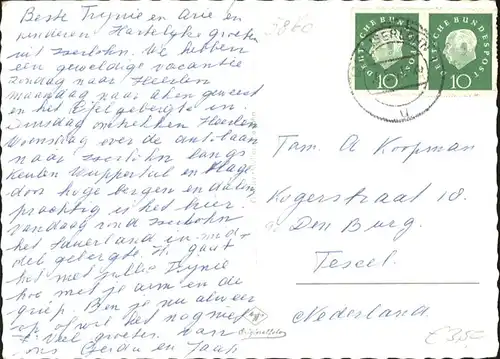 Beste Trijnie en Arie en
kinderen Hartelijke groeten
uit Iserlohn. We hebben
een geweldige vacantie
zondag naar Heerlen
maandag naar Aken geweest
en het Eifel gebergte in.
Dinsdag omtrekken Heerlen
Woensdag over de autobaan
naar Iserlohn langs
Keulen Wuppertal en Hage
door hoge bergen en dalen
prachtig is het hier.
vandaag rond Iserlohn
het Sauerland in
gebergte. H. gaat
het met jullie Trijnie
hoe met je arm en de
griep. Ben je nu alweer
op of wil het nog niet
Veel groeten van
ons Gerda en Jaap
5860
DEUTSCHE BUNDESPOST
10
DEUTSCHE BUNDESPOST
10
Fam. A Koopman
Kogerstraat 18.
Den Burg.
Texel.
Nederland.